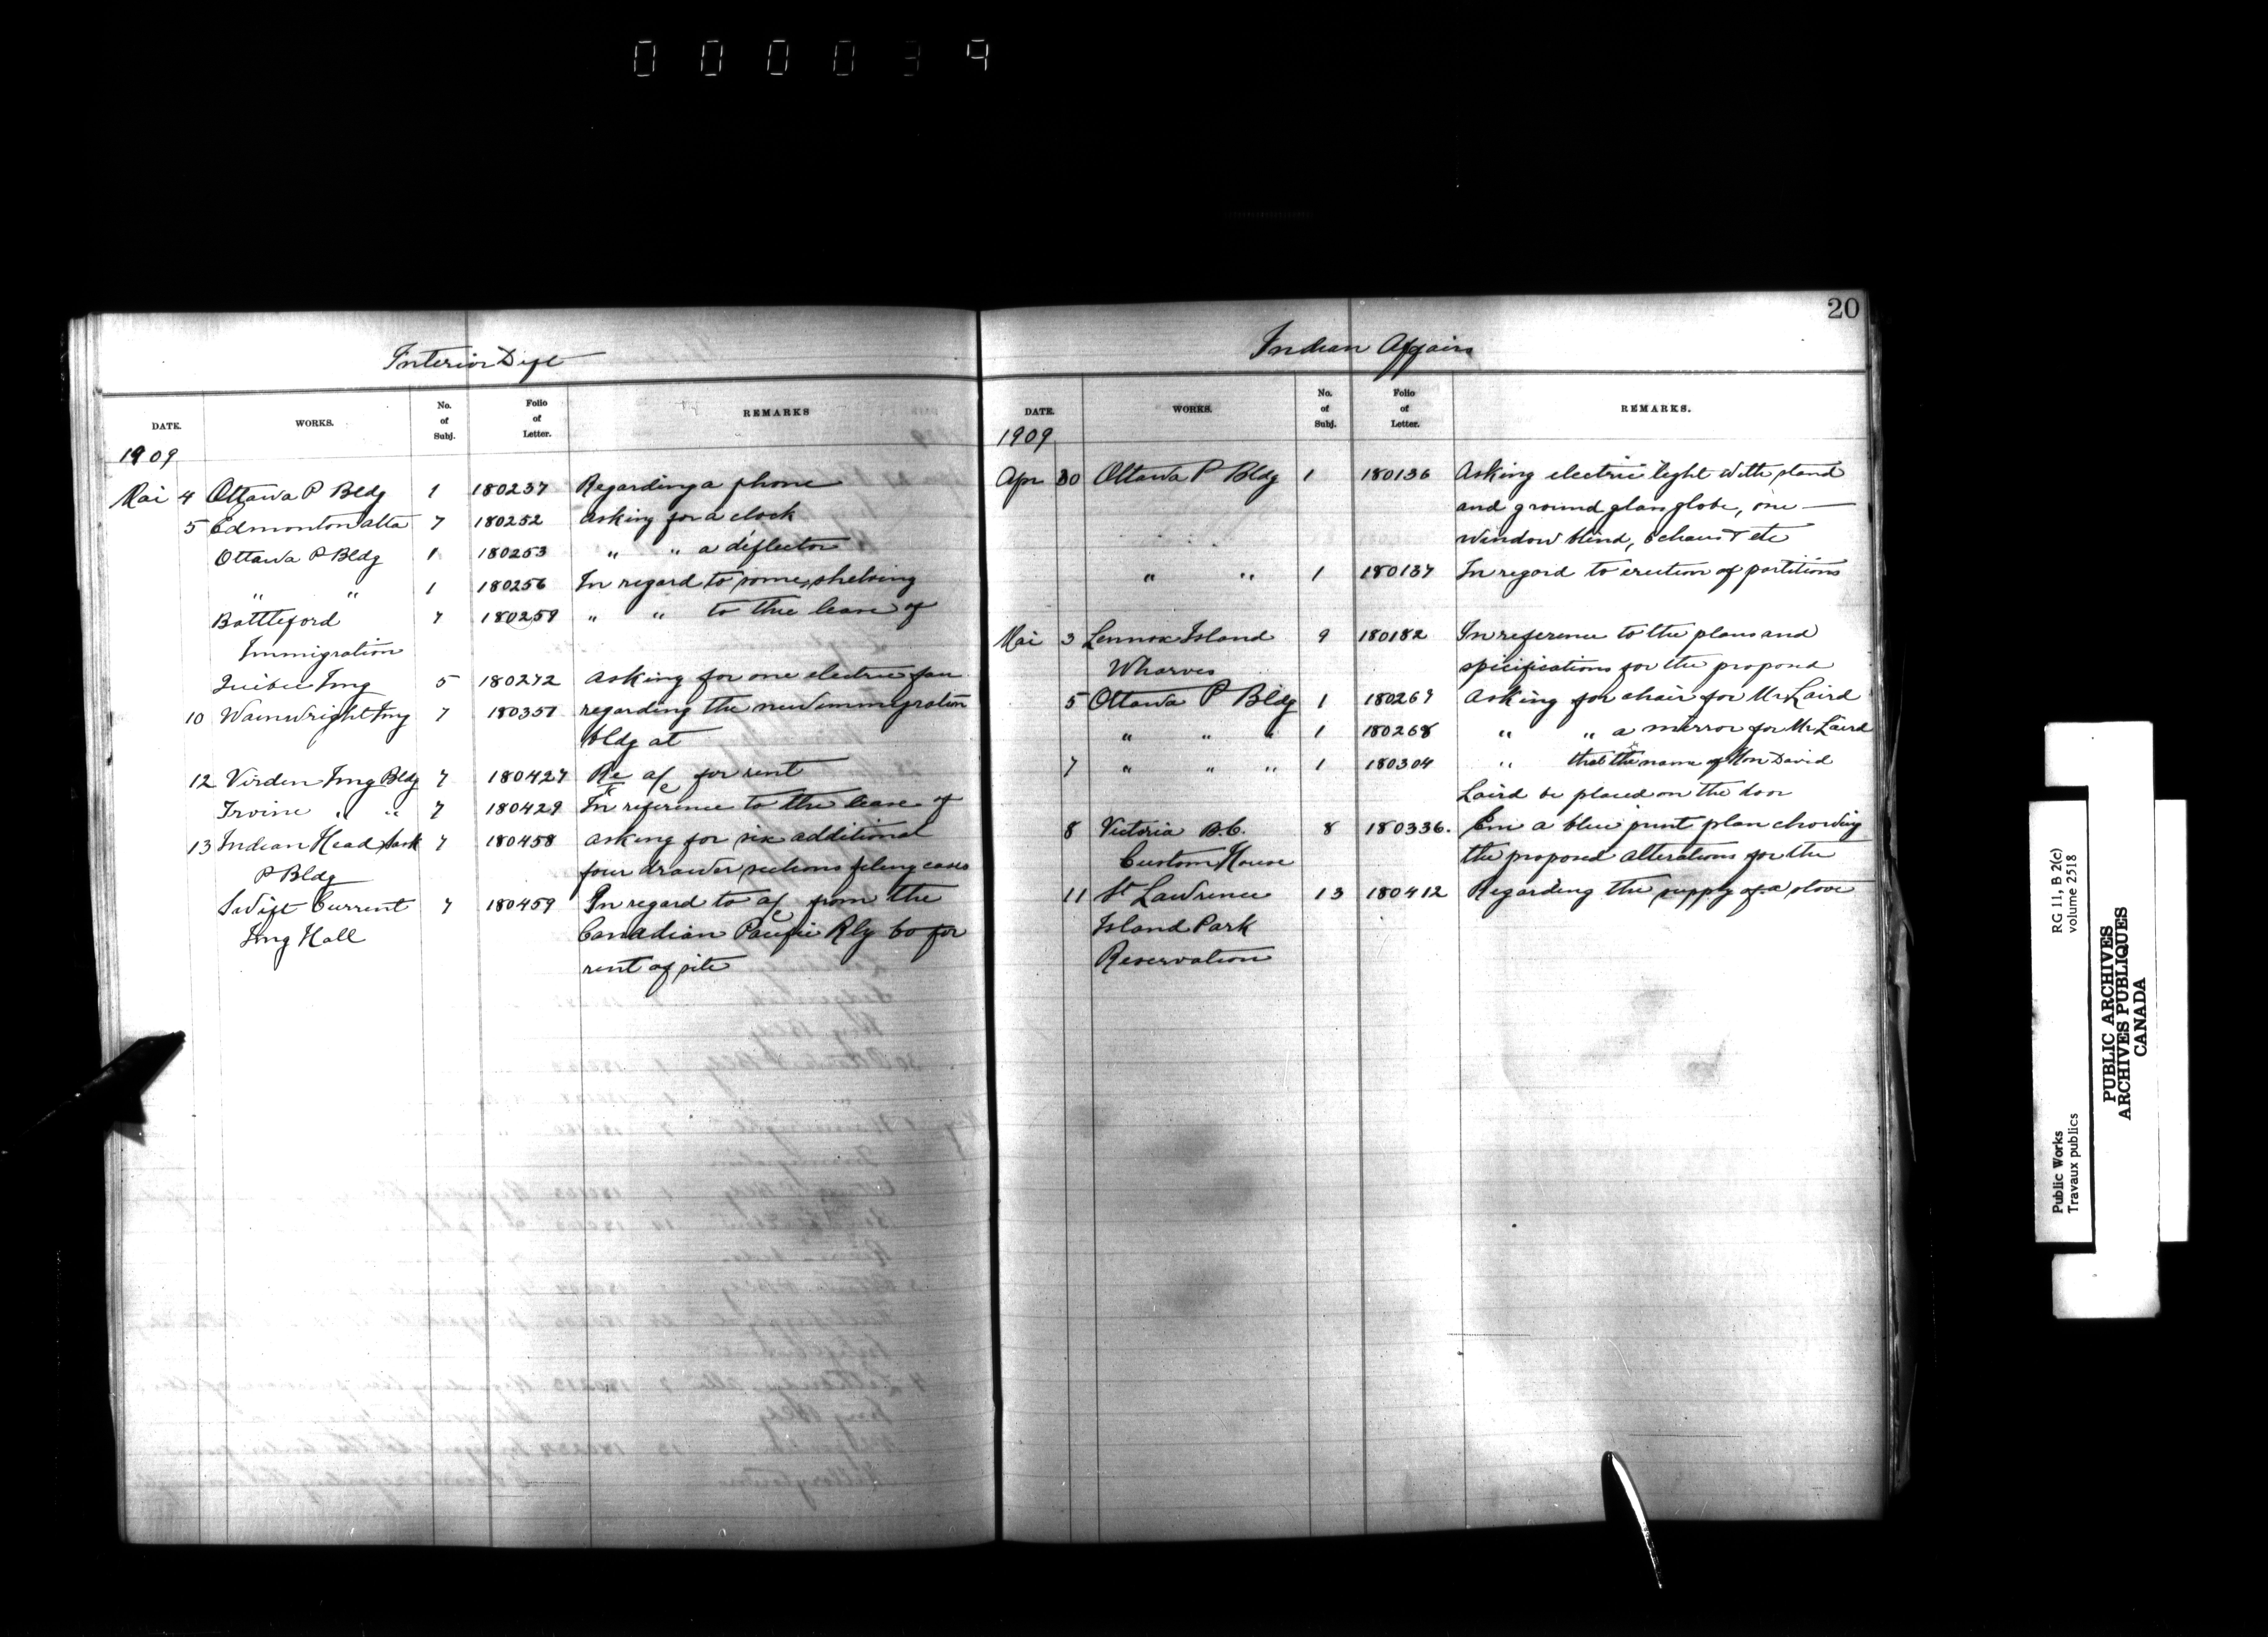 000039
20
Interior Dept
DATE. WORKS. No. of Subj. Folio of Letter. REMARKS
1909
Mai 4 Ottawa P Bldg 1 180237 Regarding a phone
5 Edmonton Alta 7 180252 asking for a clock
Ottawa P Bldg 1 180253 " " a deflector
" " 1 180256 In regard to some shelving
Battleford 7 180259 " " to the lease of
Immigration
Quebec Img 5 180272 asking for one electric fan
10 Wainwright Img 7 180351 regarding the new immigration
bldg at
12 Virden Img Bldg 7 180427 Re a/c for rent
Irvine " " 7 180429 In reference to the lease of
13 Indian Head Sask 7 180458 asking for six additional
P Bldg four drawer sections filing cases
Swift Current 7 180459 In regard to a/c from the
Img Hall Canadian Pacific Rly Co for
rent of site
Indian Affairs
DATE. WORKS. No. of Subj. Folio of Letter. REMARKS.
1909
Apr 30 Ottawa P Bldg 1 180136 Asking electric light with stand
and ground glass globe, one —
window blind, 6 chairs & etc
" " 1 180137 In regard to erection of partitions
Mai 3 Lennox Island 9 180182 In reference to the plans and
Wharves specifications for the proposed
5 Ottawa P Bldg 1 180267 asking for chair for Mr Laird
" " " 1 180268 " " a mirror for Mr Laird
7 " " " 1 180304 " that the name of Hon David
Laird be placed on the door
8 Victoria B.C. 8 180336. Enc a blue print plan showing
Custom House the proposed alterations for the
11 St Lawrence 13 180412 Regarding the supply of a stove
Island Park
Reservation
Public Works RG 11, B 2(c)
Travaux publics volume 2518
PUBLIC ARCHIVES
ARCHIVES PUBLIQUES
CANADA